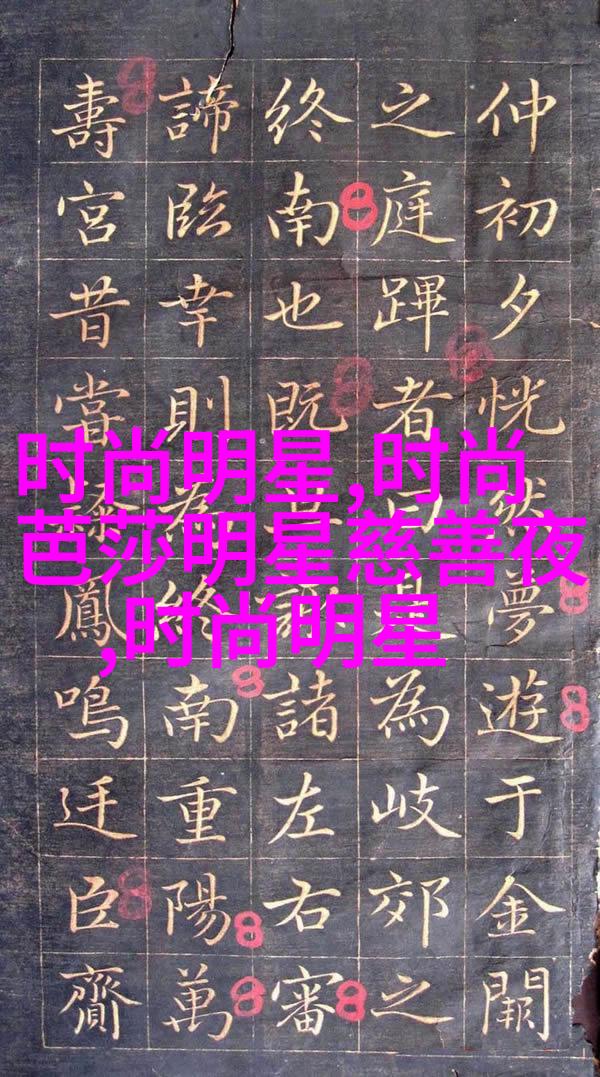 时尚明星,时尚
芭莎明星慈善夜
,时尚明星
仲初夕恍然夢遊于金闕
之庭蹕者曰是為岐郊之
終南也既諸左右審
諦臨幸則為終南重陽萬
壽宮昔當鳳鳴臣齎